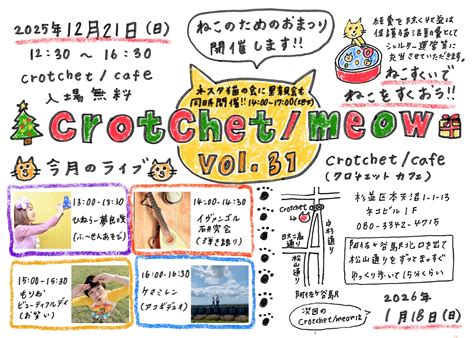 2025年12月21日(日)
12:30〜16:30
crotchet/cafe
入場無料
ねこのためのおまつり
開催します!!
経費を除く
シェルター運営等に
充当させていただきます。
ねこすくいで
ねこをすくおう!!
ネスタ猫の会に
同時開催!! 14:00-17:00
crotchet/meow
vol.31
今月のライブ
crotchet/cafe
(クロチェット カフェ)
杉並区本天沼1-1-13
ネコビル1F
080-3342-4715
阿佐ヶ谷駅北口を出て
松山通りをまっすぐ
ゆっくり歩いて15分くらい
13:00-13:30
(ふ〜せんあそび)
14:00-14:30
イヴァンゴル
石研究会
(弾き語り)
15:00-15:30
もりお
ビューティフルデイ
(お笑い)
16:00-16:30
ケマミレン
(アコギデュオ)
Crotchet
中杉通り
松山通り
阿佐ヶ谷駅
次回の
Crotchet/meowは
2026年
1月18日(日)